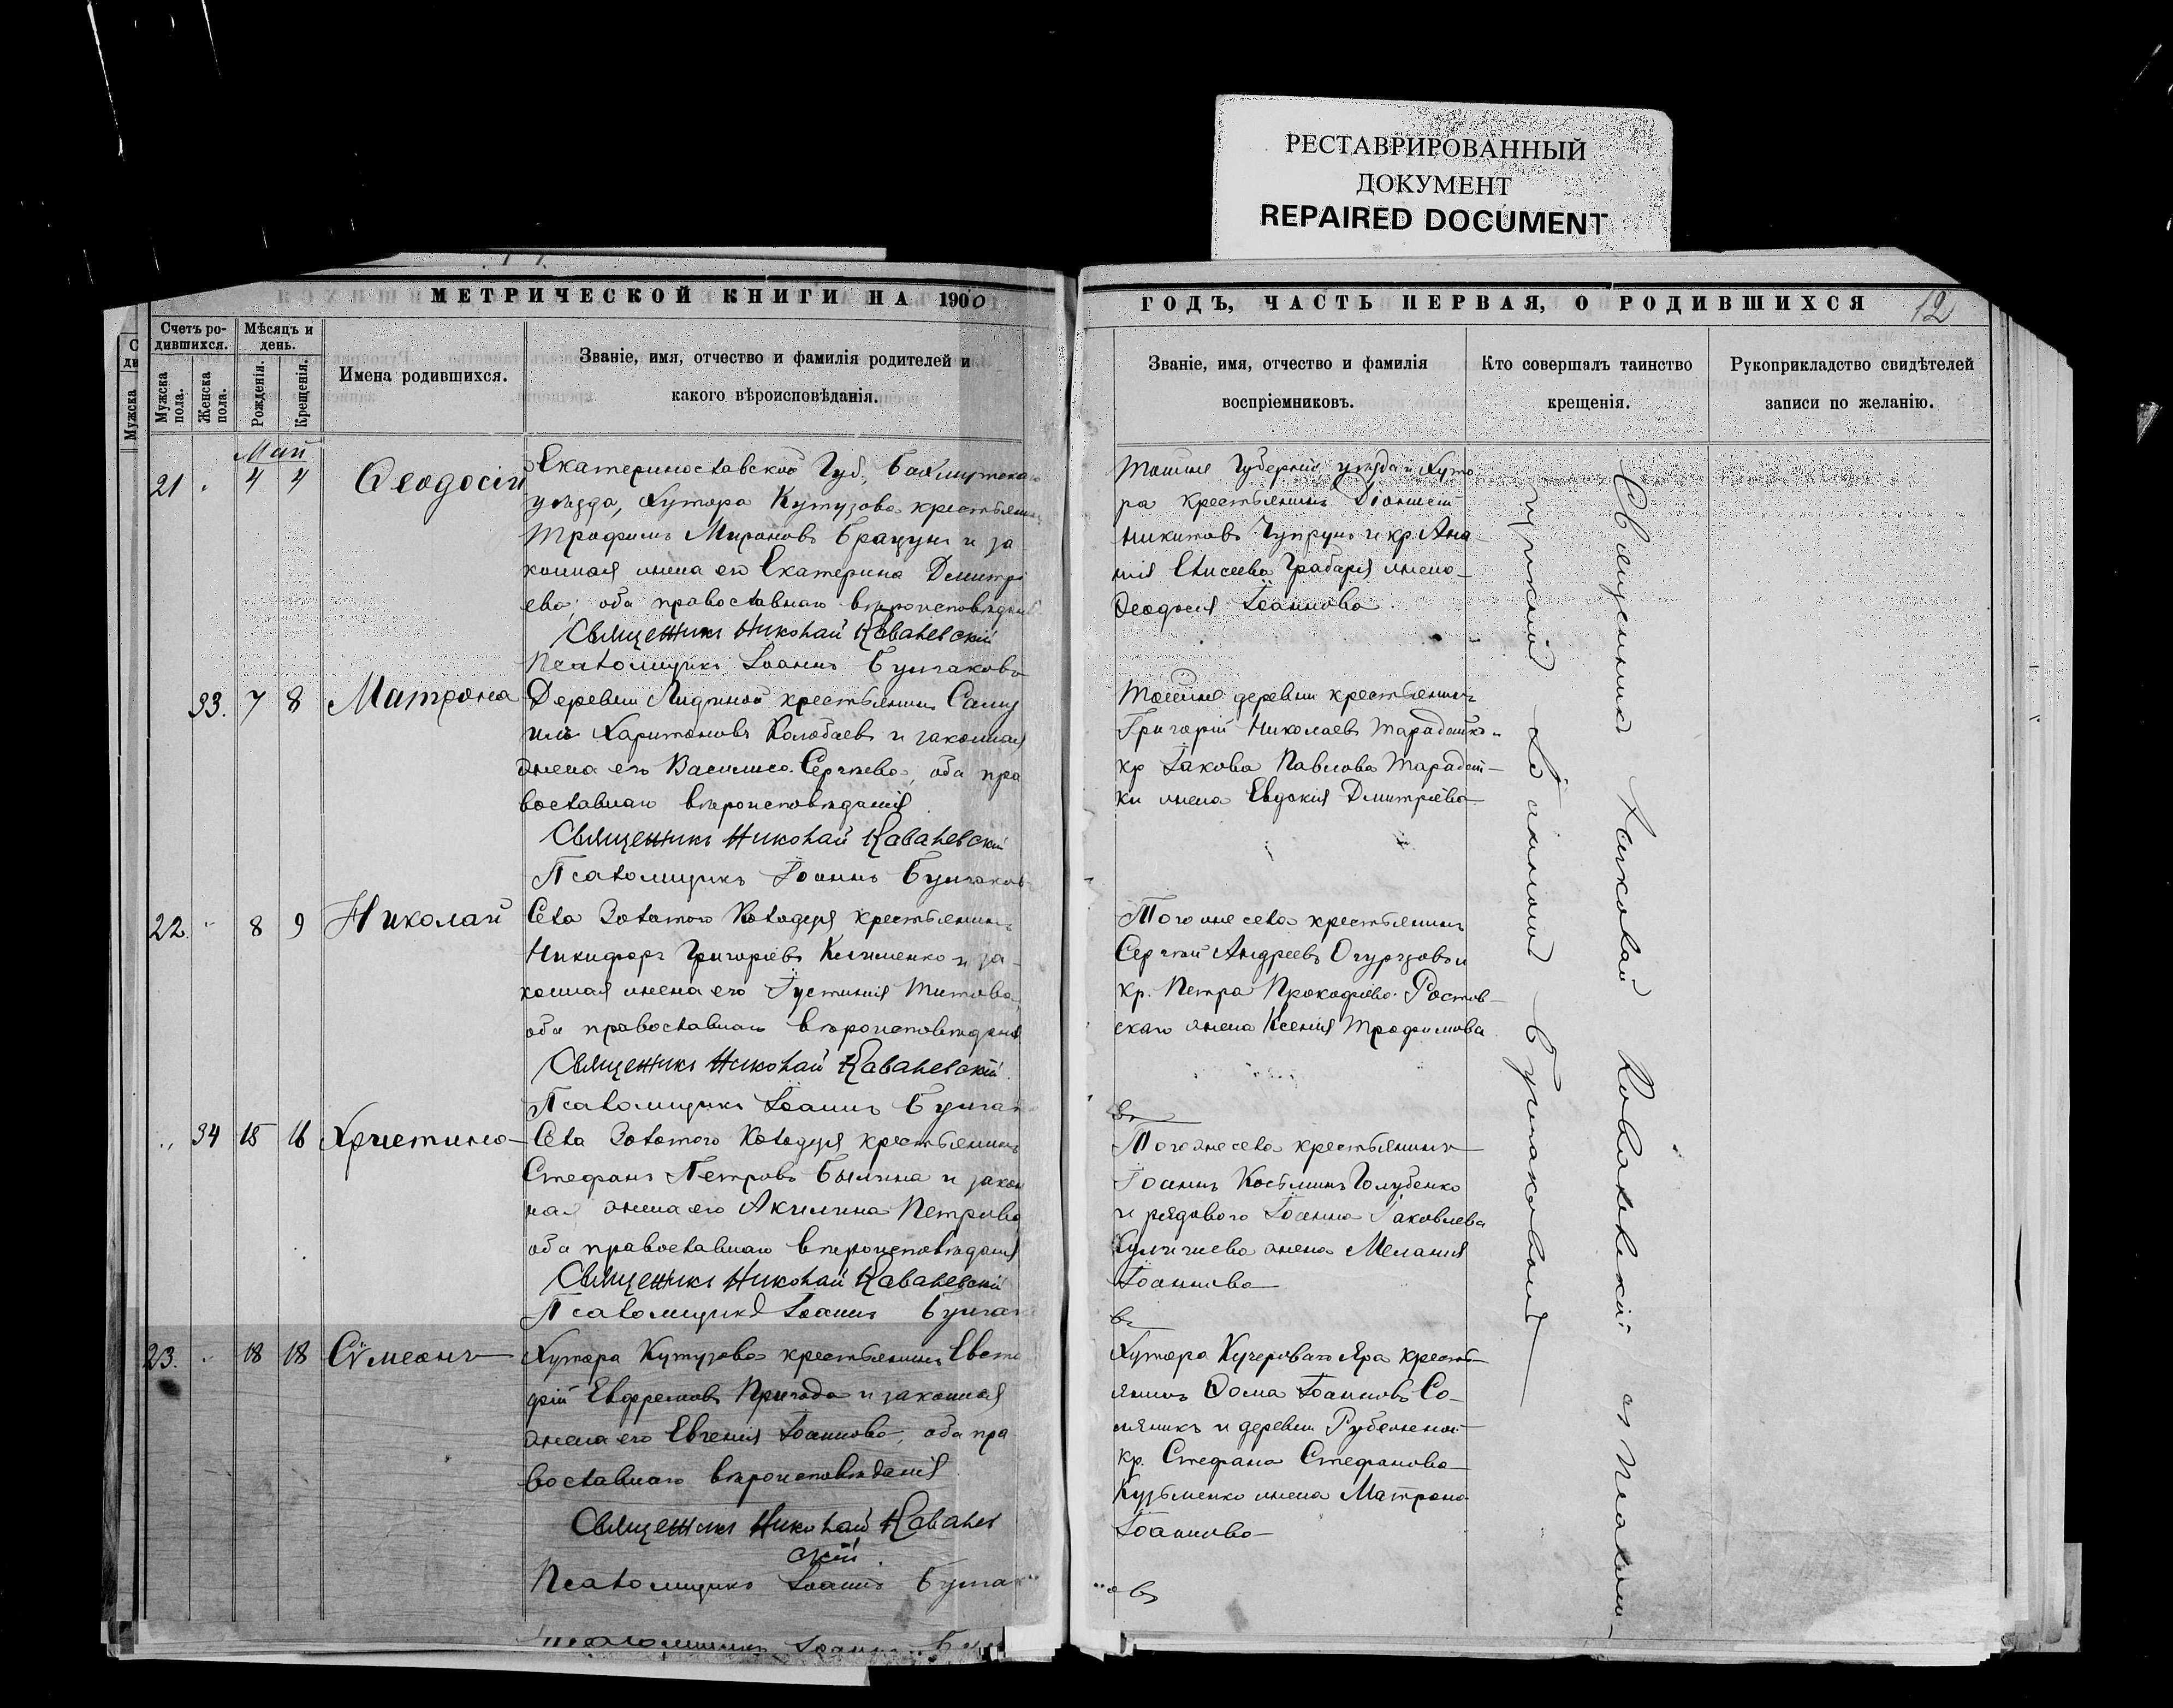 РЕСТАВРИРОВАННЫЙ
ДОКУМЕНТ
REPAIRED DOCUMENT
МЕТРИЧЕСКОЙ КНИГИ НА 1900
ГОДЪ, ЧАСТЬ ПЕРВАЯ, О РОДИВШИХСЯ
12
Счетъ ро-
дившихся.
Мужска
пола.
Женска
пола.
Мѣсяцъ и
день.
Рожденія.
Крещенія.
Имена родившихся.
Званіе, имя, отчество и фамилія родителей и
какого вѣроисповѣданія.
Званіе, имя, отчество и фамилія
воспріемниковъ.
Кто совершалъ таинство
крещенія.
Рукоприкладство свидѣтелей
записи по желанію.
Мужска
Май
21 4 4 Ѳеодосій
Екатеринославской Губ., Бахмутскаго
уѣзда, Хутора Кутузова крестьянинъ
Трофимъ Мироновъ Брацунъ и за
конная жена его Екатерина Димитрі
ева, оба православнаго вѣроисповѣданія
Священникъ Николай Ковалевскій
Псаломщикъ Іоаннъ Булгаковъ
Тойже Губерніи уѣзда и Хуто
ра крестьянинъ Діонисій
Никитовъ Чупрунъ и кр. Ана
нія Елисеева Грабаря жена
Ѳеодосія Іоаннова
33. 7 8 Матрона
Деревни Лидиной крестьянинъ Саму
илъ Харитоновъ Колодаевъ и законная
жена его Василиса Сергѣева, оба пра
вославнаго вѣроисповѣданія
Священникъ Николай Ковалевскій
Псаломщикъ Іоаннъ Булгаковъ
Тойже деревни крестьянинъ
Григорій Николаевъ
кр Іакова Павлова
ки жена Евдокія Димитріева
22. 8 9 Николай
Села Золотого Колодезя крестьянинъ
Никифоръ Григорьевъ Клименко и за-
конная жена его Іустинія Титова,
оба православнаго вѣроисповѣданія
Священникъ Николай Ковалевскій
Псаломщикъ Іоаннъ Булгако
въ
Того же села крестьянинъ
Сергѣй Андреевъ Огурцовъ и
кр. Петра Прокофьева Ростов-
скаго жена Ксенія Трофимова
34 15 16 Христина
Села Золотого Колодезя крестьянинъ
Стефанъ Петровъ Былина и закон
ная жена его Акилина Петрова
оба православнаго вѣроисповѣданія
Священникъ Николай Ковалевскій
Псаломщикъ Іоаннъ Булгако
въ
Того же села крестьянинъ
Іоаннъ Косьминъ Голубенко
и рядового Іоанна Іаковлева
жена Меланія
Іоаннова
23. 18 18 Сѵмеонъ
Хутора Кутузова крестьянинъ Евста
фій Евфремовъ Пригода и законная
жена его Евгенія Іоаннова, оба пра
вославнаго вѣроисповѣданія
Священникъ Николай Ковалев
скій
Псаломщикъ Іоаннъ Булгак
овъ
Хутора Кучероваго Яра кресть-
янинъ Ѳома Іоанновъ Со-
ляникъ и деревни Рубежной
кр. Стефана Стефанова
Кузьменко жена Матрона
Іоаннова
Священникъ Николай Ковалевскій съ Псалом-
щикомъ Іоанномъ Булгаковымъ
Псаломщикъ Іоаннъ